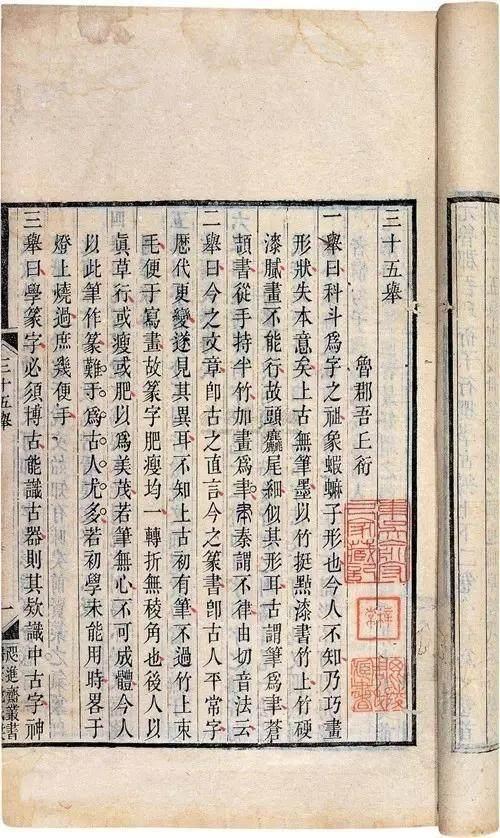 三十五舉
魯郡吾丘衍
一舉曰科斗爲字之祖象蝦蟆子形也今人不知乃巧畫
形狀失本意矣上古無筆墨以竹挺點漆書竹上竹硬
漆膩畫不能行故頭麤尾細似其形耳古謂筆爲聿蒼
頡書從手持半竹加畫爲聿秦謂不律由切音法云
二舉曰今之文章卽古之直言今之篆書卽古人平常字
厯代更變遂見其異耳不知上古初有筆不過竹上束
毛便于寫畫故篆字肥瘦均一轉折無稜角也後人以
眞草行或瘦或肥以爲美茂若筆無心不可成體今人
以此筆作篆難于爲古人尤多若初學未能用時畧于
燈上燒過庶幾便手
三舉曰學篆字必須博古能識古器則其欵識中古字神
三十五舉
一
咫進齋叢書